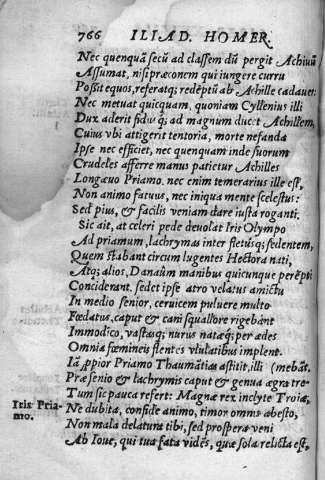 766 ILIAD. HOMER.
Nec quenquã secũ ad classem dũ pergit Achiuũ
Assumat, nisi præconem qui iungere curru
Possit equos, referatq; redẽptũ ab Achille cadauer:
Nec metuat quicquam, quoniam Cyllenius illi
Dux aderit fidus q; ad magnum ducet Achillem,
Cuius vbi attigerit tentoria, morte nefanda
Ipse nec efficiet, nec quenquam inde suorum
Crudeles afferre manus patietur Achilles
Longæuo Priamo. nec enim temerarius ille est,
Non animo fatuus, nec iniqua mente scelestus:
Sed pius, & facilis veniam dare iusta roganti.
Sic ait, at celeri pede deuolat Iris Olympo
Ad priamum, lachrymas inter fletusq; sedentem,
Quem stabant circum lugentes Hectora nati,
Atq; alios, Danaũm manibus quicunque perẽpti
Conciderant. sedet ipse atro velatus amictu
In medio senior, ceruicem puluere multo
Fœdatus, caput & cani squallore rigebant
Immodico, vastasq; nurus natæq; per ædes
Omnia fœmineis flentes vlulatibus implent.
Iã ꝓpior Priamo Thaumãtias astitit, illi (mebãt.
Præ senio & lachrymis caput & genua ægra tre-
Tum sic pauca refert: Magnæ rex inclyte Troiæ,
Iris Pria-
mo.
Ne dubita, confide animo, timor omnis abesto,
Non mala delatura tibi, sed prospera veni
Ab Ioue, qui tua fata vidẽs, quæ sola relicta est,